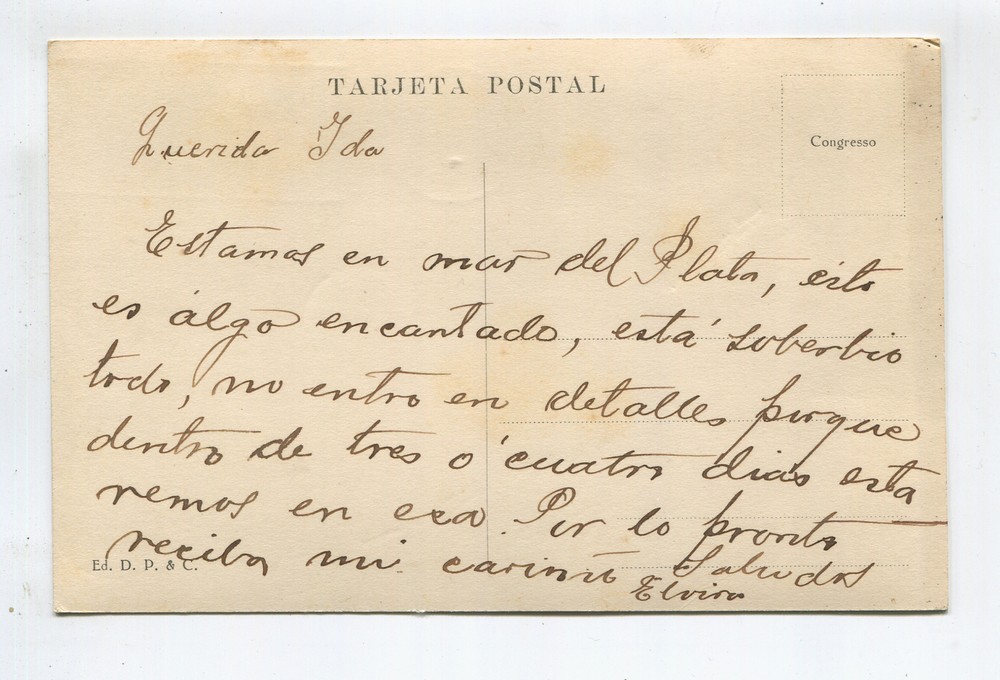 TARJETA POSTAL
Congresso
Querida Ida
Estamos en mar del Plata, ésto
es álgo encantado, está soberbio
todo, no entro en detalles porque
dentro de tres ó cuatro dias esta
remos en esa. Por lo pronto
reciba mi cariño Saludos
Elvira
Ed. D. P. & C.